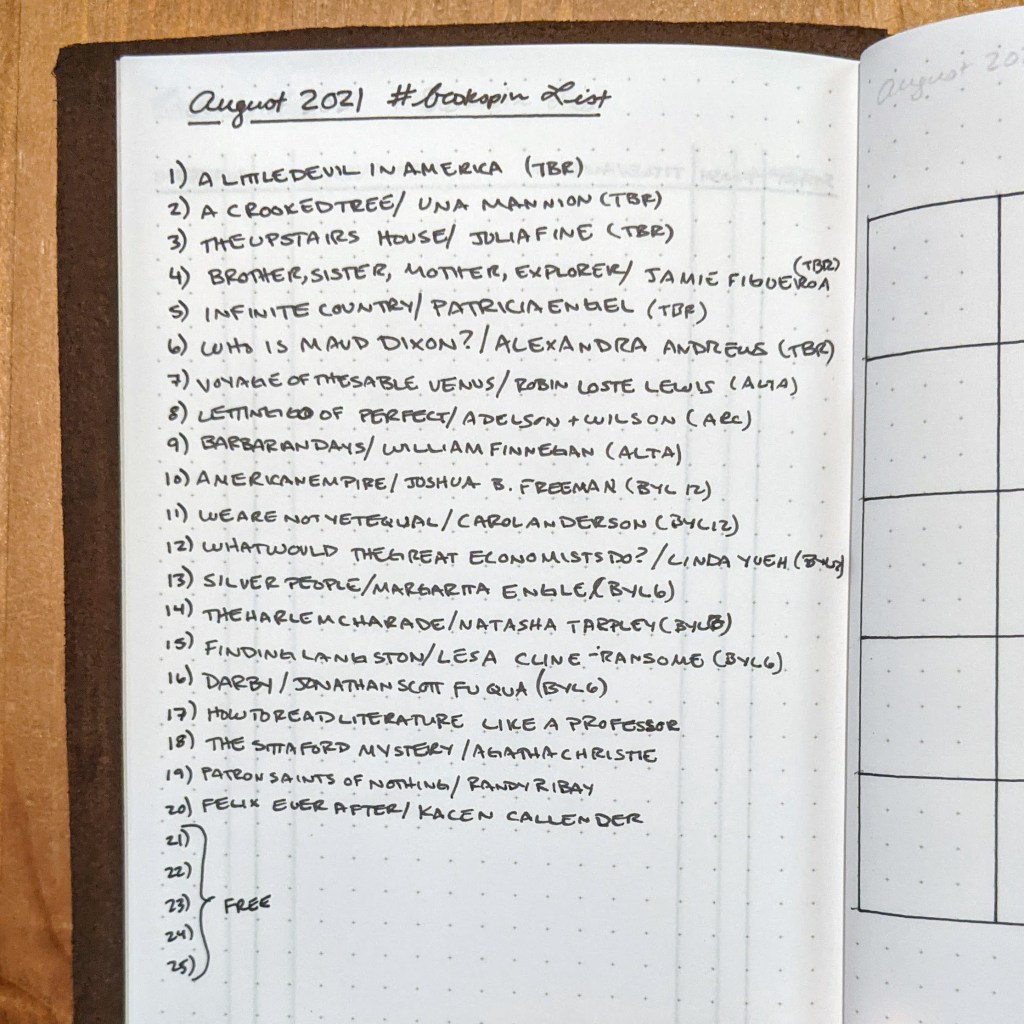 August 2021 #bookspin List
1) A LITTLE DEVIL IN AMERICA (TBR)
2) A CROOKED TREE/ UNA MANNION (TBR)
3) THE UPSTAIRS HOUSE/ JULIA FINE (TBR)
4) BROTHER, SISTER, MOTHER, EXPLORER/ JAMIE FIGUEROA (TBR)
5) INFINITE COUNTRY/ PATRICIA ENGEL (TBR)
6) WHO IS MAUD DIXON?/ALEXANDRA ANDREWS (TBR)
7) VOYAGE OF THE SABLE VENUS/ROBIN COSTE LEWIS (ALTA)
8) LETTING GO OF PERFECT/ ADELSON + WILSON (ARC)
9) BARBARIAN DAYS/ WILLIAM FINNEGAN (ALTA)
10) AMERICAN EMPIRE/ JOSHUA B. FREEMAN (BYL 12)
11) WE ARE NOT YET EQUAL/CAROL ANDERSON (BYL12)
12) WHAT WOULD THE GREAT ECONOMISTS DO?/LINDA YUEH (BYL12)
13) SILVER PEOPLE/MARGARITA ENGLE (BYL6)
14) THE HARLEM CHARADE/NATASHA TARPLEY (BYL6)
15) FINDING LANGSTON/LESA CLINE-RANSOME (BYL6)
16) DARBY/JONATHAN SCOTT FUQUA (BYL6)
17) HOW TO READ LITERATURE LIKE A PROFESSOR
18) THE SITTAFORD MYSTERY/AGATHA CHRISTIE
19) PATRON SAINTS OF NOTHING/ RANDY RIBAY
20) FELIX EVER AFTER/ KACEN CALLENDER
21)
22)
23) FREE
24)
25)
August